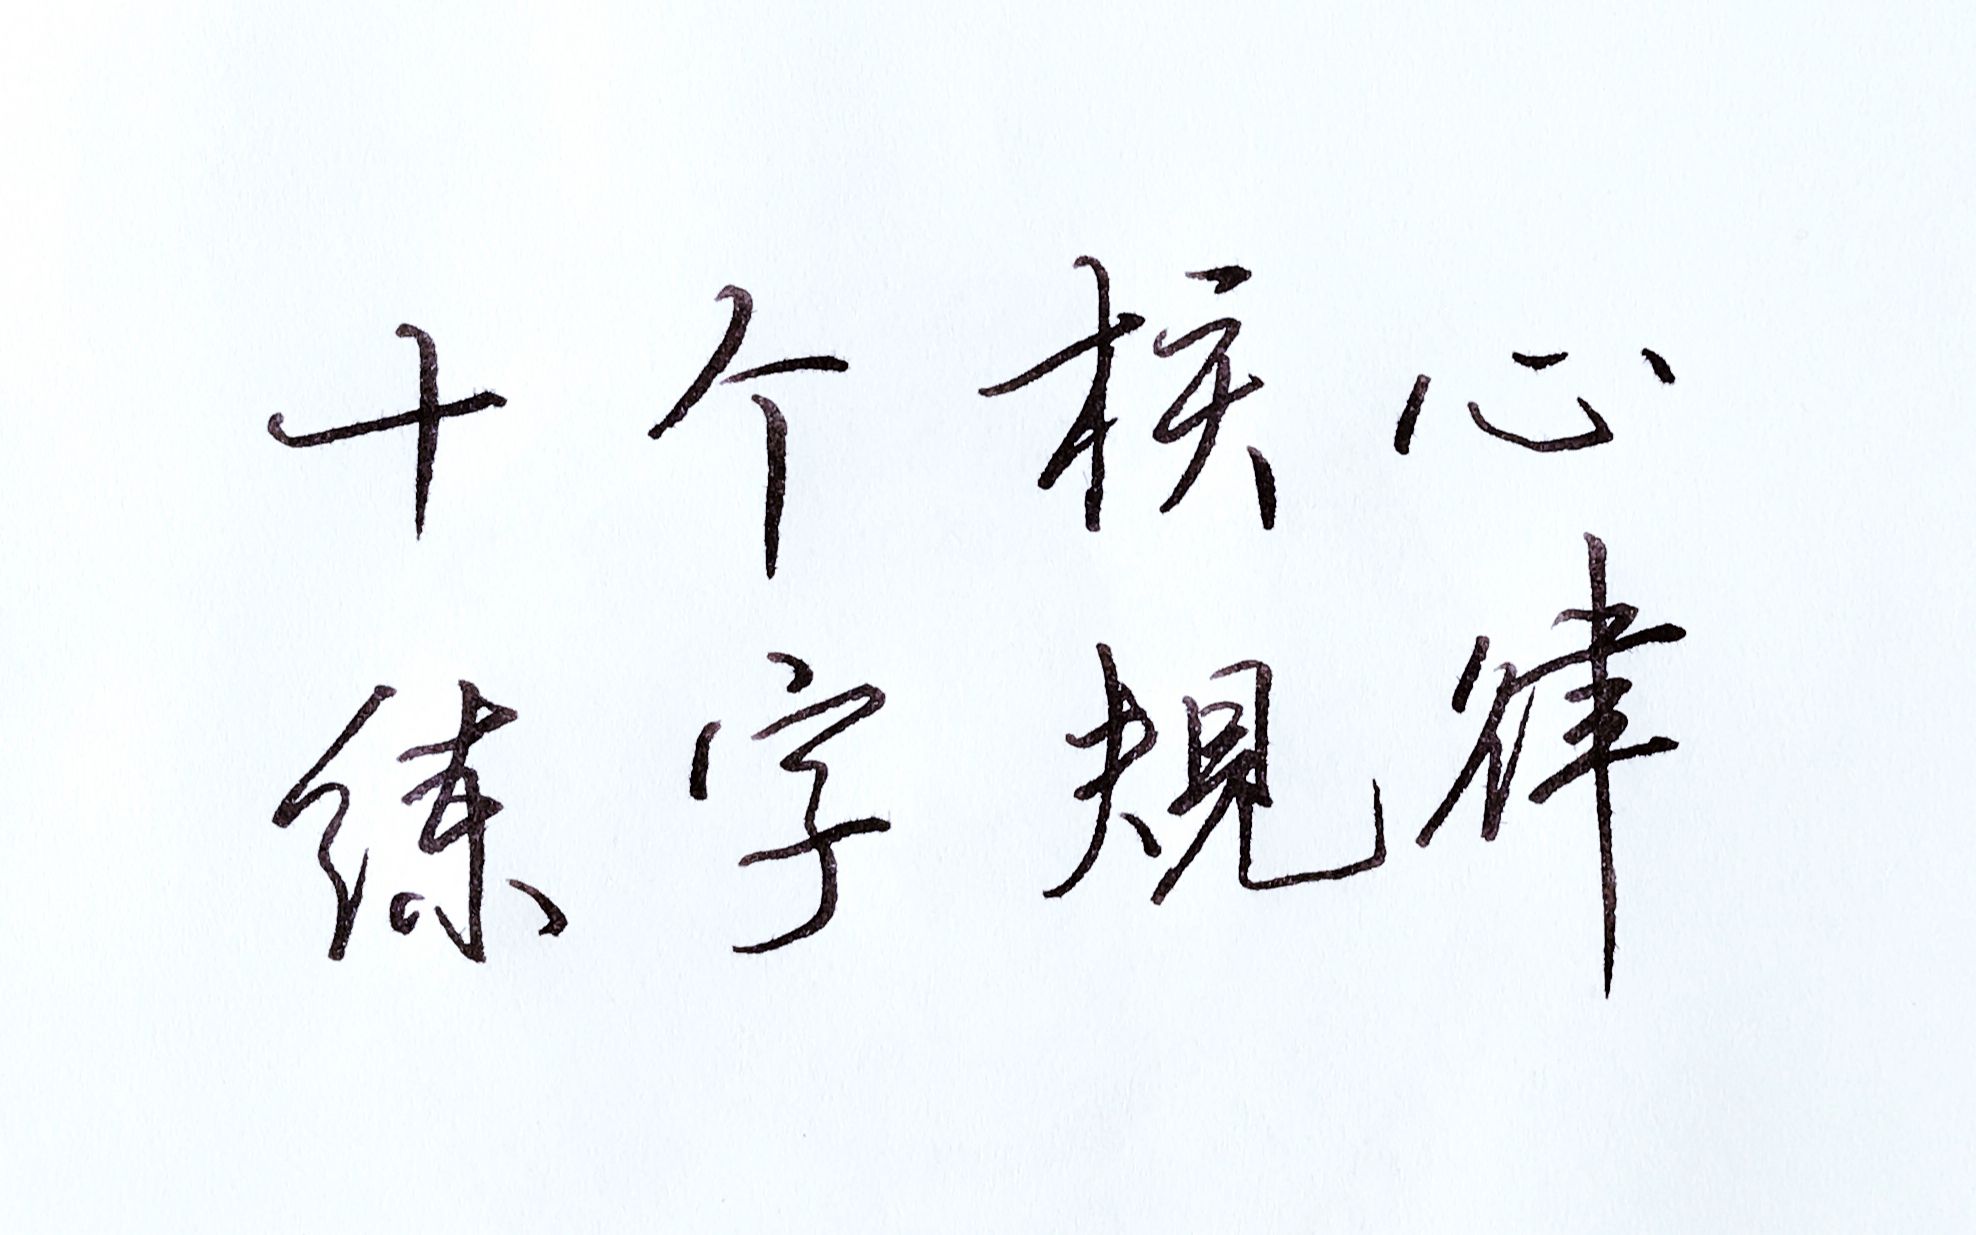 十个核心
练字规律